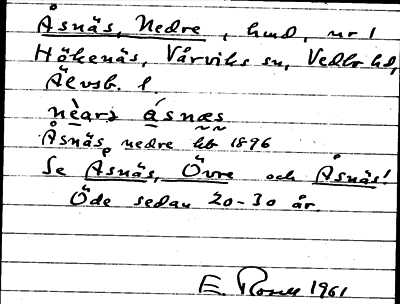 Åsnäs, Nedre, hmd, nr 1
Hökenäs, Vårviks sn, Vedbo hd,
Älvsb. l.
nèarə åsnæs
Åsnäs, nedre hb 1896
Se Åsnäs, Övre och Åsnäs!
Öde sedan 20-30 år.
E. Rosell 1961